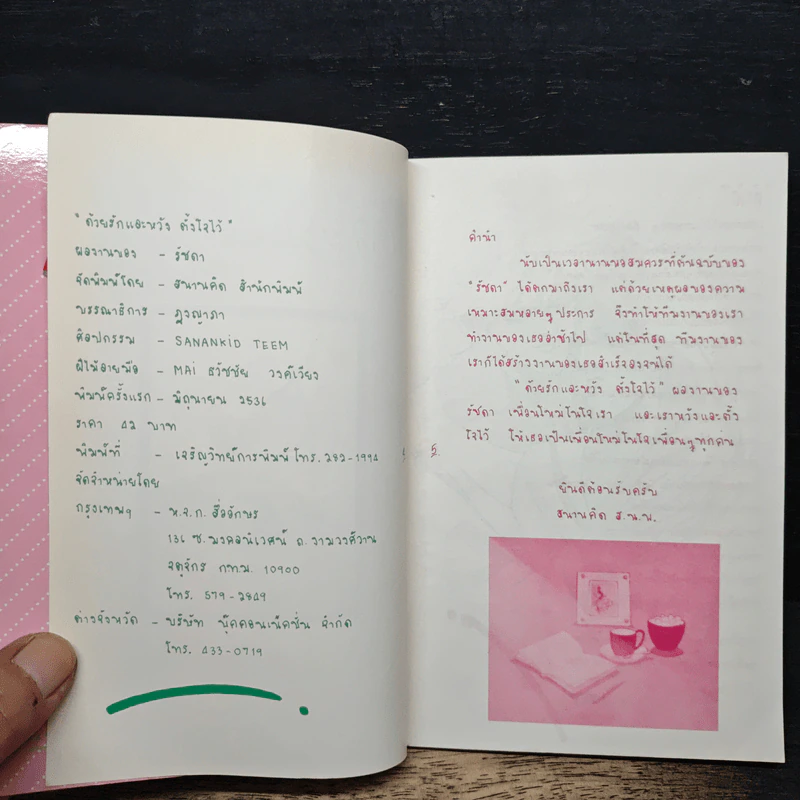 "ด้วยรักและหวัง ตั้งใจไว้"
ผลงานของ - รัชดา
จัดพิมพ์โดย - สนานคิด สำนักพิมพ์
บรรณาธิการ - ฎงญาภา
ศิลปกรรม - SANANKID TEEM
ฝีไม้ลายมือ - MAI ธวัชชัย วงค์เวียง
พิมพ์ครั้งแรก - มิถุนายน 2536
ราคา 42 บาท
พิมพ์ที่ - เจริญวิทย์การพิมพ์ โทร. 282-1994
จัดจำหน่ายโดย
กรุงเทพฯ - ห.จ.ก. สื่ออักษร
136 ซ.มงคลนิเวศน์ ถ.งามวงศ์วาน
จตุจักร กทม. 10900
โทร. 579-2849
ต่างจังหวัด - บริษัท บุ๊คคอนเน็คชั่น จำกัด
โทร. 433-0719
คำนำ
นับเป็นเวลานานพอสมควรที่ต้นฉบับของ
"รัชดา" ได้ตกมาถึงเรา แต่ด้วยเหตุผลของความ
เหมาะสมหลายๆ ประการ จึงทำให้ทีมงานของเรา
ทำงานของเธอล่าช้าไป แต่ในที่สุด ทีมงานของ
เราก็ได้สร้างงานของเธอสำเร็จลงจนได้
"ด้วยรักและหวัง ตั้งใจไว้" ผลงานของ
รัชดา เพื่อนใหม่ในใจเรา และเราหวังและตั้ง
ใจไว้ ให้เธอเป็นเพื่อนใหม่ในใจเพื่อนๆทุกคน
ยินดีต้อนรับครับ
สนานคิด ส.น.พ.